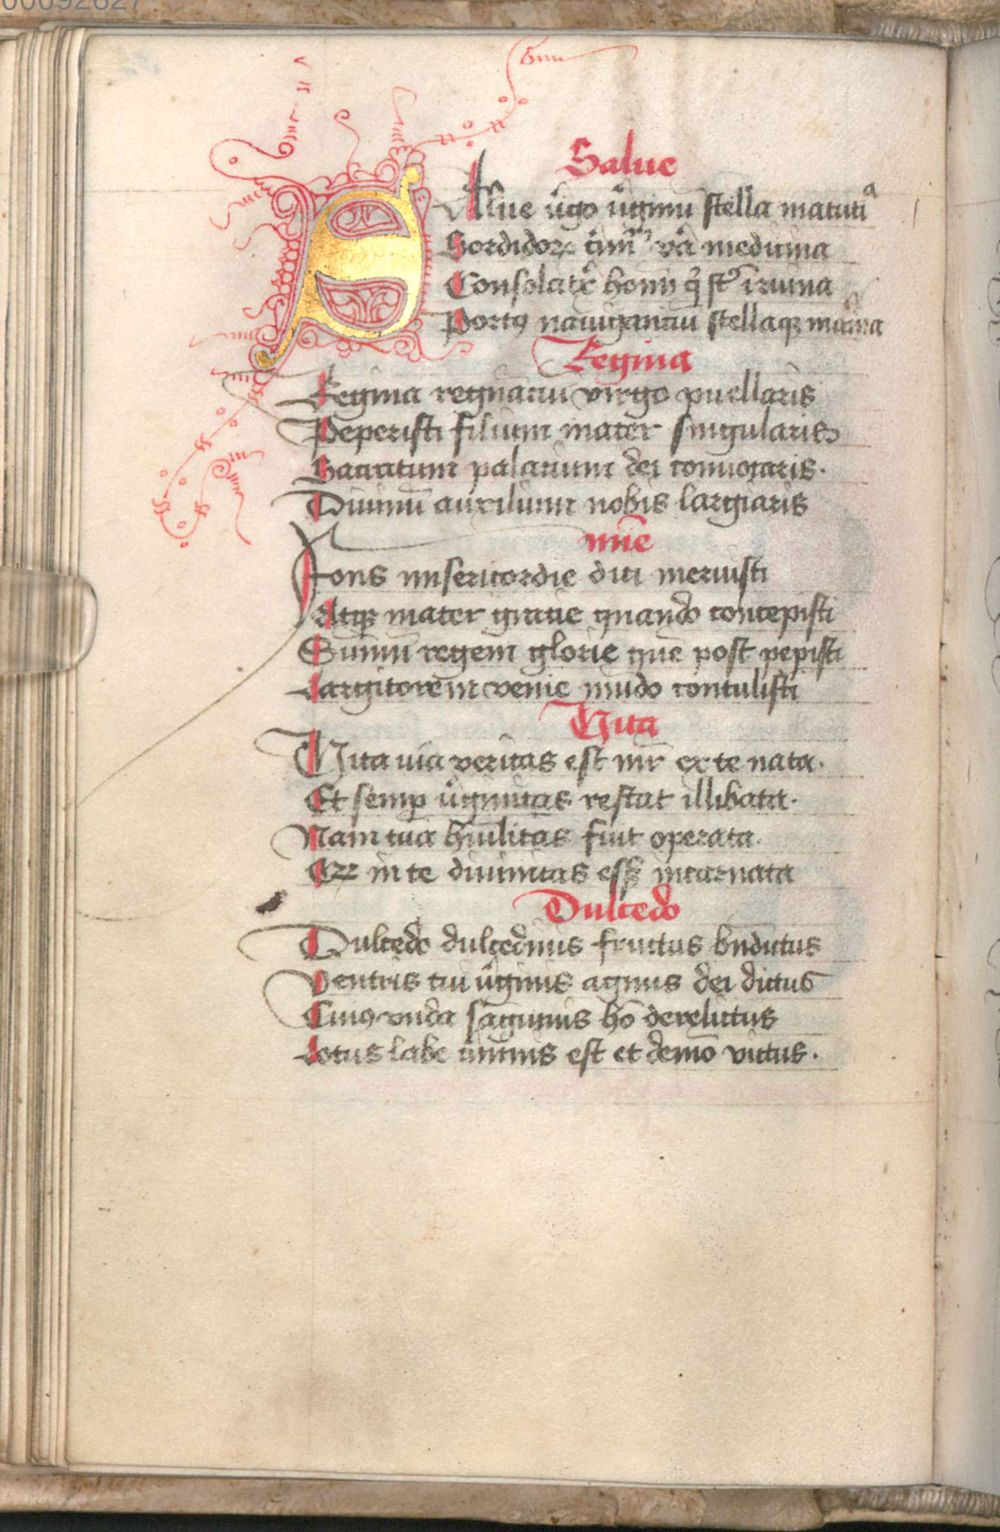 Salue
SAlue v̾go v̾ginu stella matuti
Sordidoꝝ c̾im̅ v̾a medicina
Consolatr̾ homi q̾ st̾ i ruina
Portꝯ nauigantiu stellaqꝫ ma̾ina
Regina
Regina regnantiu virgo puellaris
Peperisti filium mater singularis
Sacratum palatium dei conuocaris.
Diuinu̅ auxilium nobis largiaris
mi̅e
Fons misericordie dici meruisti
Atqꝫ mater gratie quando concepisti
Summu̅ regem glorie que̅ post pepisti
Largitorem venie mu̅do contulisti
Vita
Vita uia veritas est mr̅ ex te nata.
Et semꝑ v̾ginitas restat illibata.
Nam tua hu̅ilitas fuit operata.
Qꝛ in te diuinitas essꝫ incarnata
Dulcedo
Dulcedo dulcedinis fructus bn̅dictus
Ventris tui v̾ginis agnus dei dictus
Cuiꝯ vnda sa̅guinis ho̅ derelictus
Lotus labe c̾iminis est et demo̅ victus.